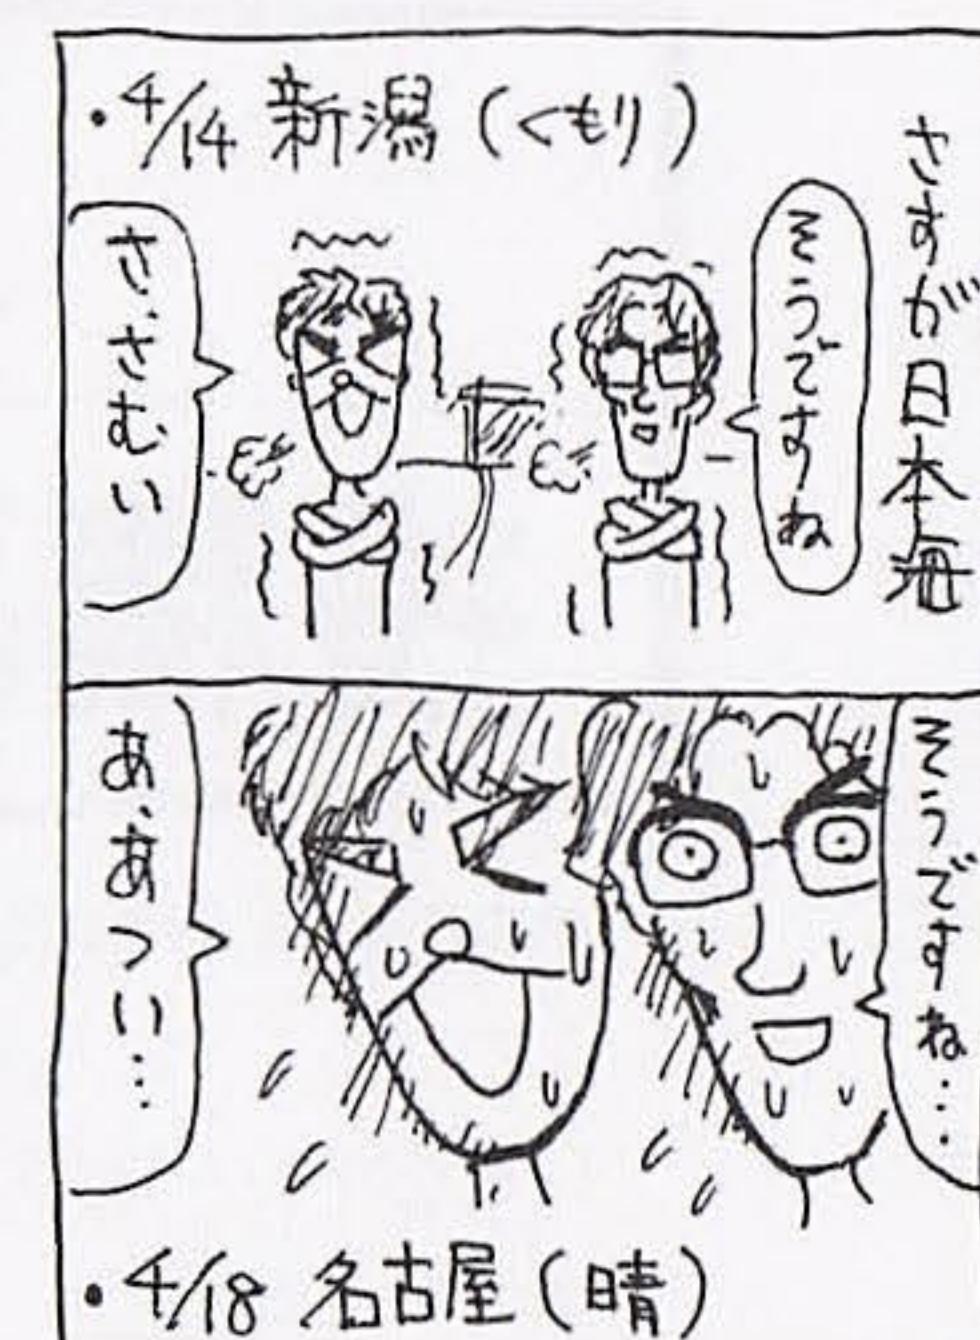 ・4/14 新潟(くもり)
さすが日本海
そうですね
さ、さむい
そうですね…
あ、あつい…
・4/18 名古屋(晴)